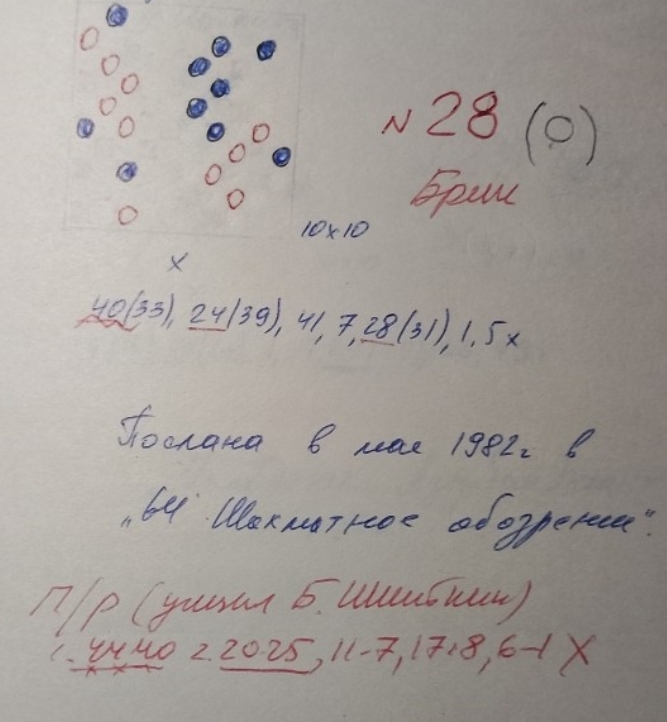 N 28 (0)
Брик
10x10
x
40(33), 24(39), 41, 7, 28(31), 1, 5x
Послана в мае 1982г в
„64 Шахматное обозрение".
П/р (учтил Б. Шкиткин)
1. 4440 2. 20-25, 11-7, 17:8, 6-1 X